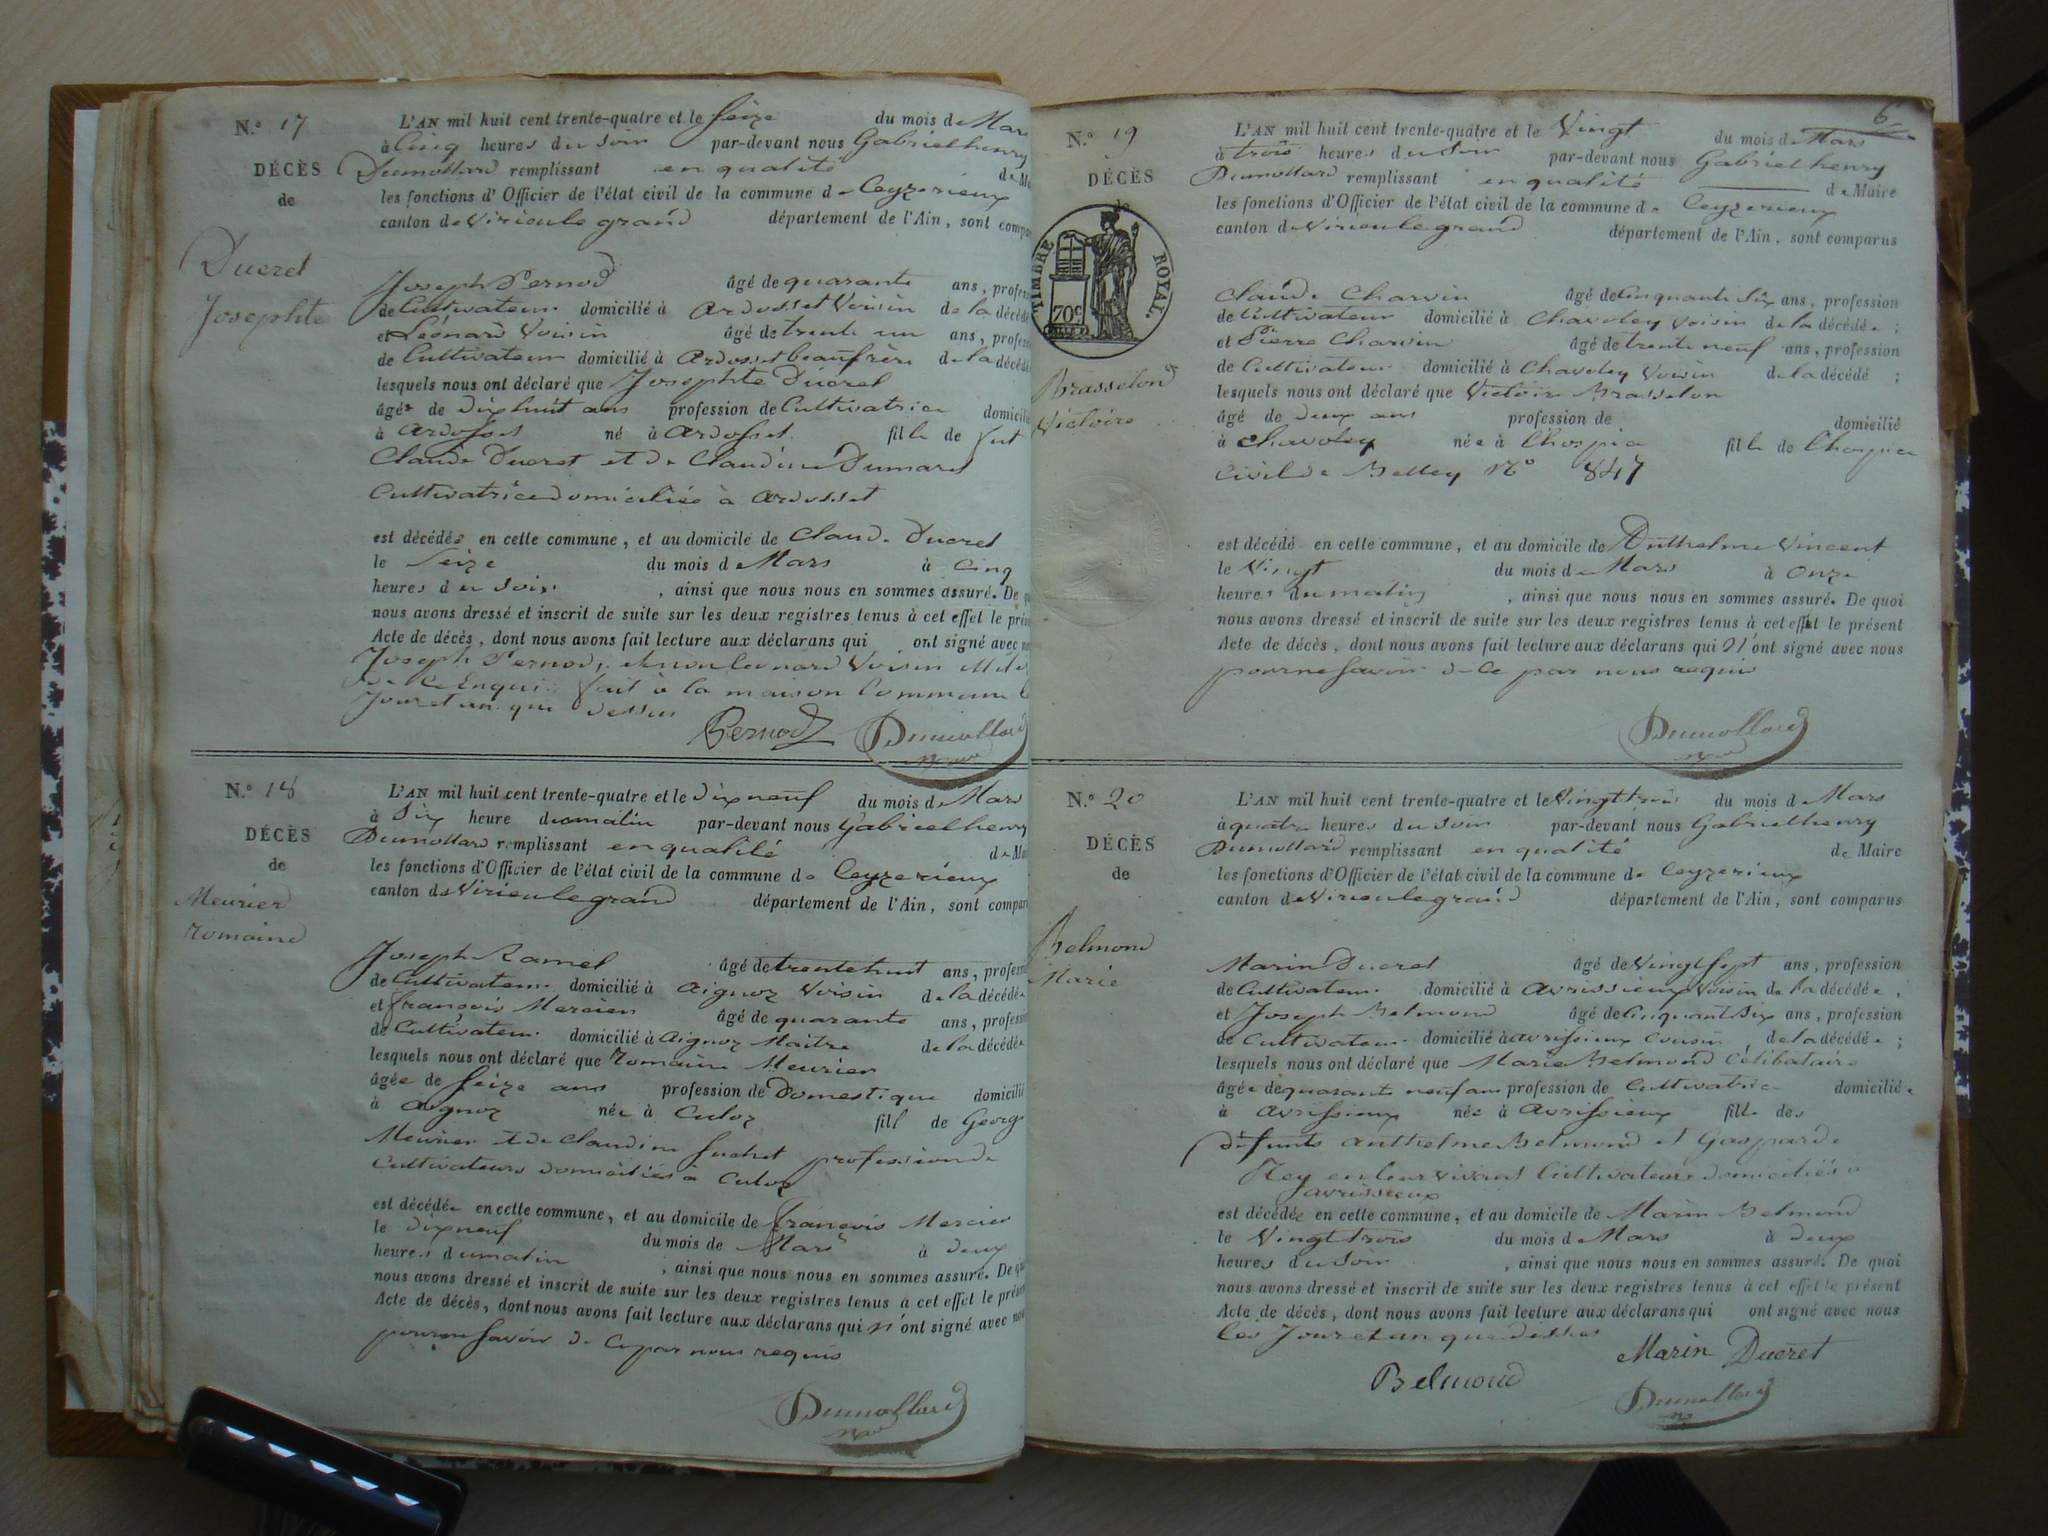 N.º 17
DÉCÈS
de
Ducret
Josephte
L'AN mil huit cent trente-quatre et le seize du mois de Mars
à Cinq heures du soir par-devant nous Gabriel henry
Dumollard remplissant en qualité de
les fonctions d'Officier de l'état civil de la commune de Ceyzerieux
canton de Virieulegrand département de l'Ain, sont
Joseph Pernod âgé de quarante ans,
de Cultivateur domicilié à Ardosset Voisin de la
et Léonard Voisin âgé de trente un ans,
de Cultivateur domicilié à Ardosset beaufrère de la
lesquels nous ont déclaré que Josephte Ducret
âgée de dixhuit ans profession de Cultivatrice
à Ardosset né à Ardosset fille de
Claude Ducret et de Claudine Dumarest
Cultivatrice domiciliée à Ardosset
est décédée en cette commune, et au domicile de Claude Ducret
le seize du mois de Mars à Cinq
heures du soir, ainsi que nous nous en sommes assuré. De
nous avons dressé et inscrit de suite sur les deux registres tenus à cet effet le
Acte de décès, dont nous avons fait lecture aux déclarans qui ont signé avec
Joseph Pernod, et non Léonard Voisin
Enquis fait à la maison Commune
Jour et an que dessus
Pernod Dumollard
N.º 18
DÉCÈS
de
Meurier
Romaine
L'AN mil huit cent trente-quatre et le dixneuf du mois de Mars
à six heure du matin par-devant nous Gabriel henry
Dumollard remplissant en qualité de
les fonctions d'Officier de l'état civil de la commune de Ceyzerieux
canton de Virieulegrand département de l'Ain, sont
Joseph Ramel âgé de trentehuit ans,
de Cultivateur domicilié à Aignoz Voisin de la décédée
et françois Mercier âgé de quarante ans,
de Cultivateur domicilié à Aignoz Maitre de la décédée
lesquels nous ont déclaré que Romaine Meurier
âgée de seize ans profession de Domestique domicilié
à Aignoz née à Culoz fill de George
Meurier et de Claudine suchet profession de
Cultivateurs domiciliés à Culoz
est décédée en cette commune, et au domicile de françois Mercier
le dixneuf du mois de Mars à deux
heures du matin, ainsi que nous nous en sommes assuré. De
nous avons dressé et inscrit de suite sur les deux registres tenus à cet effet le
Acte de décès, dont nous avons fait lecture aux déclarans qui n'ont signé avec
pour ne savoir de ce par nous requis
Dumollard
6
N.º 19
DÉCÈS
de
TIMBRE ROYAL.
70c
Brasselond
Victoire
L'AN mil huit cent trente-quatre et le Vingt du mois de Mars
à trois heures du soir par-devant nous Gabriel henry
Dumollard remplissant en qualité de Maire
les fonctions d'Officier de l'état civil de la commune de Ceyzerieux
canton de Virieulegrand département de l'Ain, sont comparus
Claude Charvin âgé de Cinquante six ans, profession
de Cultivateur domicilié à Chavoley voisin de la décédée;
et Pierre Charvin âgé de trente neuf ans, profession
de Cultivateur domicilié à Chavoley Voisin de la décédé;
lesquels nous ont déclaré que Victoire Brasselon
âgé de deux ans profession de domicilié
à Chavoley née à lhospice fille de lhospice
Civil de Belley Nº 847
est décédé en cette commune, et au domicile de Anthelme Vincent
le Vingt du mois de Mars à Onze
heures du matin, ainsi que nous nous en sommes assuré. De quoi
nous avons dressé et inscrit de suite sur les deux registres tenus à cet effet le présent
Acte de décès, dont nous avons fait lecture aux déclarans qui N'ont signé avec nous
pour ne savoir de Ce par nous requis
Dumollard
N.º 20
DÉCÈS
de
Belmond
Marie
L'AN mil huit cent trente-quatre et le Vingttrois du mois de Mars
à quatre heures du soir par-devant nous Gabriel henry
Dumollard remplissant en qualité de Maire
les fonctions d'Officier de l'état civil de la commune de Ceyzerieux
canton de Virieulegrand département de l'Ain, sont comparus
Marin Ducret âgé de Vingt sept ans, profession
de Cultivateur domicilié à Avrissieux Voisin de la décédée;
et Joseph Belmond âgé de Cinquant six ans, profession
de Cultivateur domicilié à Avrissieux Cousin de la décédée;
lesquels nous ont déclaré que Marie Belmond Célibataire
âgée de quarante neuf ans profession de Cultivatrice domiciliée
à Avrissieux née à Avrissieux fille des
défunts Anthelme Belmond et Gasparde
Rey en leur vivant Cultivateurs domiciliés à
Avrissieux
est décédée en cette commune, et au domicile de Marin Belmond
le Vingt trois du mois de Mars à deux
heures du soir, ainsi que nous nous en sommes assuré. De quoi
nous avons dressé et inscrit de suite sur les deux registres tenus à cet effet le présent
Acte de décès, dont nous avons fait lecture aux déclarans qui ont signé avec nous
les Jour et an que dessus
Marin Ducret
Belmond
Dumollard